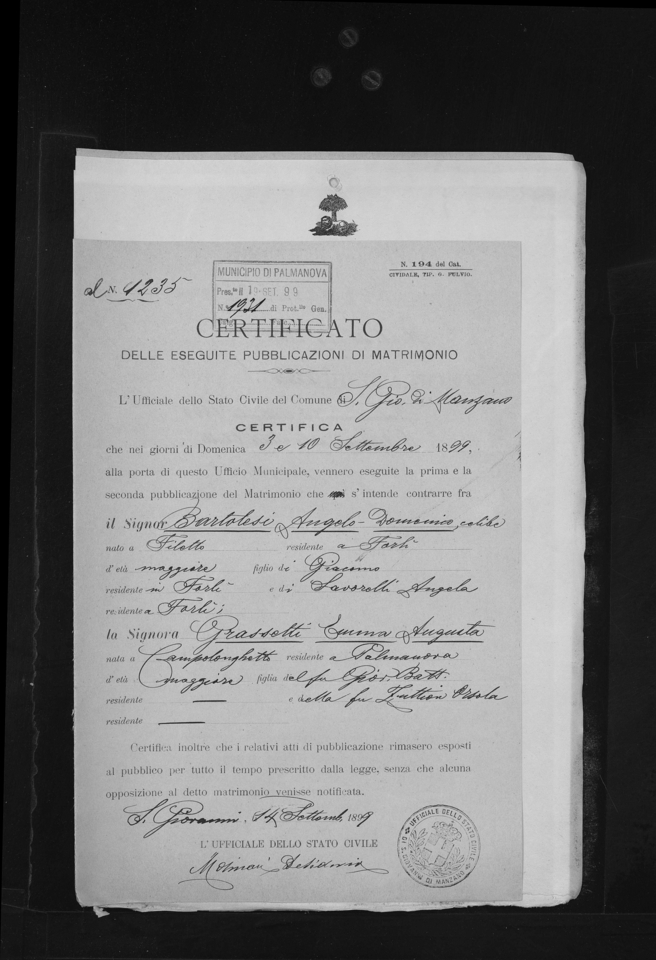 N. 194 del Cat.
CIVIDALE, TIP. G. FULVIO.
al N. 1235
MUNICIPIO DI PALMANOVA
Pres. il 1 SET. 99
N. 1931 di Prot. Gen.
CERTIFICATO
DELLE ESEGUITE PUBBLICAZIONI DI MATRIMONIO
L' Ufficiale dello Stato Civile del Comune di S. Gio. di Manzano
CERTIFICA
che nei giorni di Domenica 3 e 10 Settembre 1899,
alla porta di questo Ufficio Municipale, vennero eseguite la prima e la
seconda pubblicazione del Matrimonio che s' intende contrarre fra
il Signor Bartolesi Angelo-Domenico, celibe
nato a Filetto residente a Forlì
d' età maggiore figlio di Giacomo
residente in Forlì e di Savorelli Angela
residente a Forlì;
la Signora Grassetti Emma Augusta
nata a Campolonghetto residente a Palmanova
d' età maggiore figlia del fu Giov. Batt.
residente — e della fu Zuttion Orsola
residente —
Certifica inoltre che i relativi atti di pubblicazione rimasero esposti
al pubblico per tutto il tempo prescritto dalla legge, senza che alcuna
opposizione al detto matrimonio venisse notificata.
S. Giovanni, 14 Settemb. 1899
L' UFFICIALE DELLO STATO CIVILE
Molinari Desiderio
UFFICIALE DELLO STATO CIVILE
DI S. GIOVANNI DI MANZANO